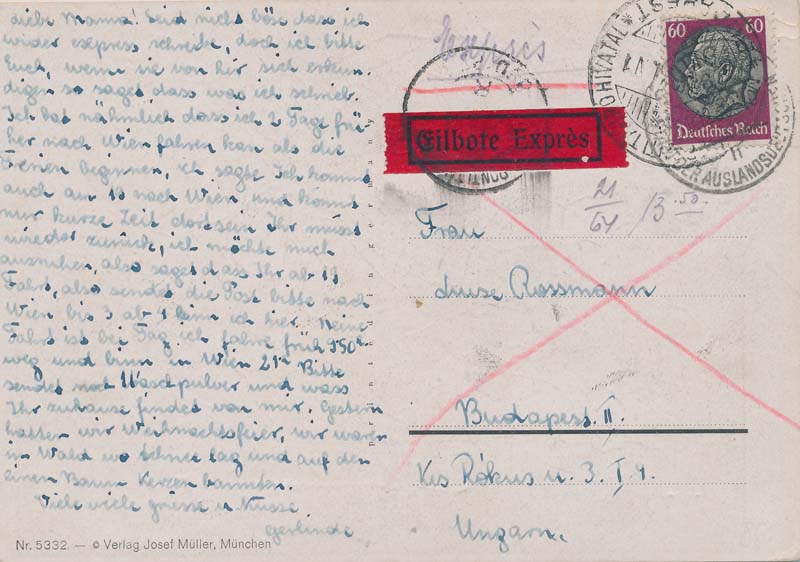 Liebe Mama! Seid nicht böse dass ich
wider express schreibe, doch ich bitte
Euch, wenn sie von hir sich erkun
digen so saget dass was ich schrieb.
Ich hab nähmlich dass ich 2 Tage frü
her nach Wien fahren kan als die
Ferien beginnen, ich sagte Ich komme
auch am 18 nach Wien und könnt
nur kurze Zeit dort sein Ihr müsst
wieder zurück, ich möchte mich
ausruhen, also saget dass Ihr ab 18
Fahrt, also sendet die Post bitte nach
Wien bis 3 ab 4 bin ich hier. Meine
Fahrt ist bei Tag ich fahre früh 9.50h
weg und binn in Wien 21h Bitte
sendet noch Waschpulver und wass
Ihr zuhause findet von mir. Gestern
hatten wir Weihnachtsfeier, wir waren
in Wald wo Schnee lag und auf den
einen Baum Kerzen brannten.
Viele viele grüsse u. Küsse
Gerlinde
Nr. 5332. — © Verlag Josef Müller, München
printed in germany
Exprès
60 60
Deutsches Reich
DER AUSLANDSDEUTSCHEN
Eilbote Exprès
21/64 /3.50
Frau
Luise Rossmann
Budapest. II.
Kis Rókus u. 3. I 4.
Ungarn.